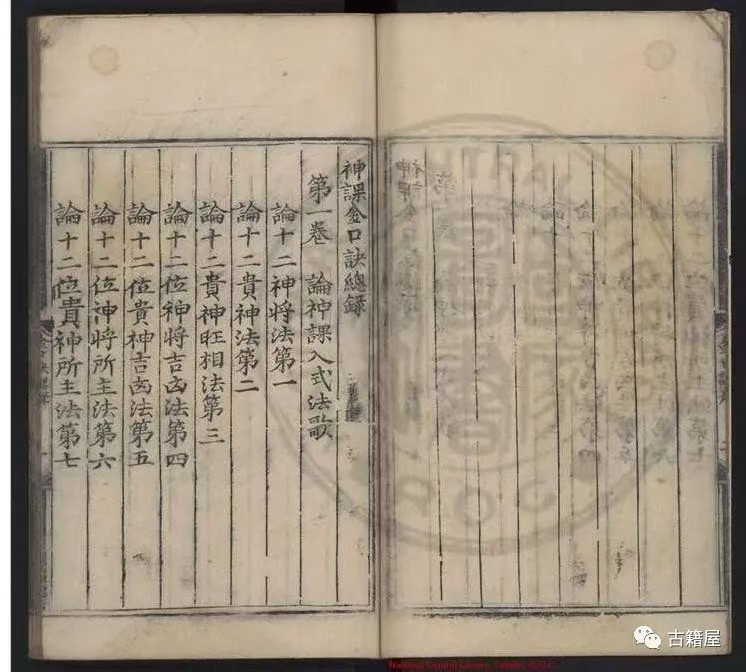 神課金口訣總錄
第一卷 論神課入式法歌
論十二神將法第一
論十二貴神法第二
論十二貴神旺相法第三
論十二位神將吉凶法第四
論十二位貴神吉凶法第五
論十二位神將所主法第六
論十二位貴神所主法第七
古籍屋